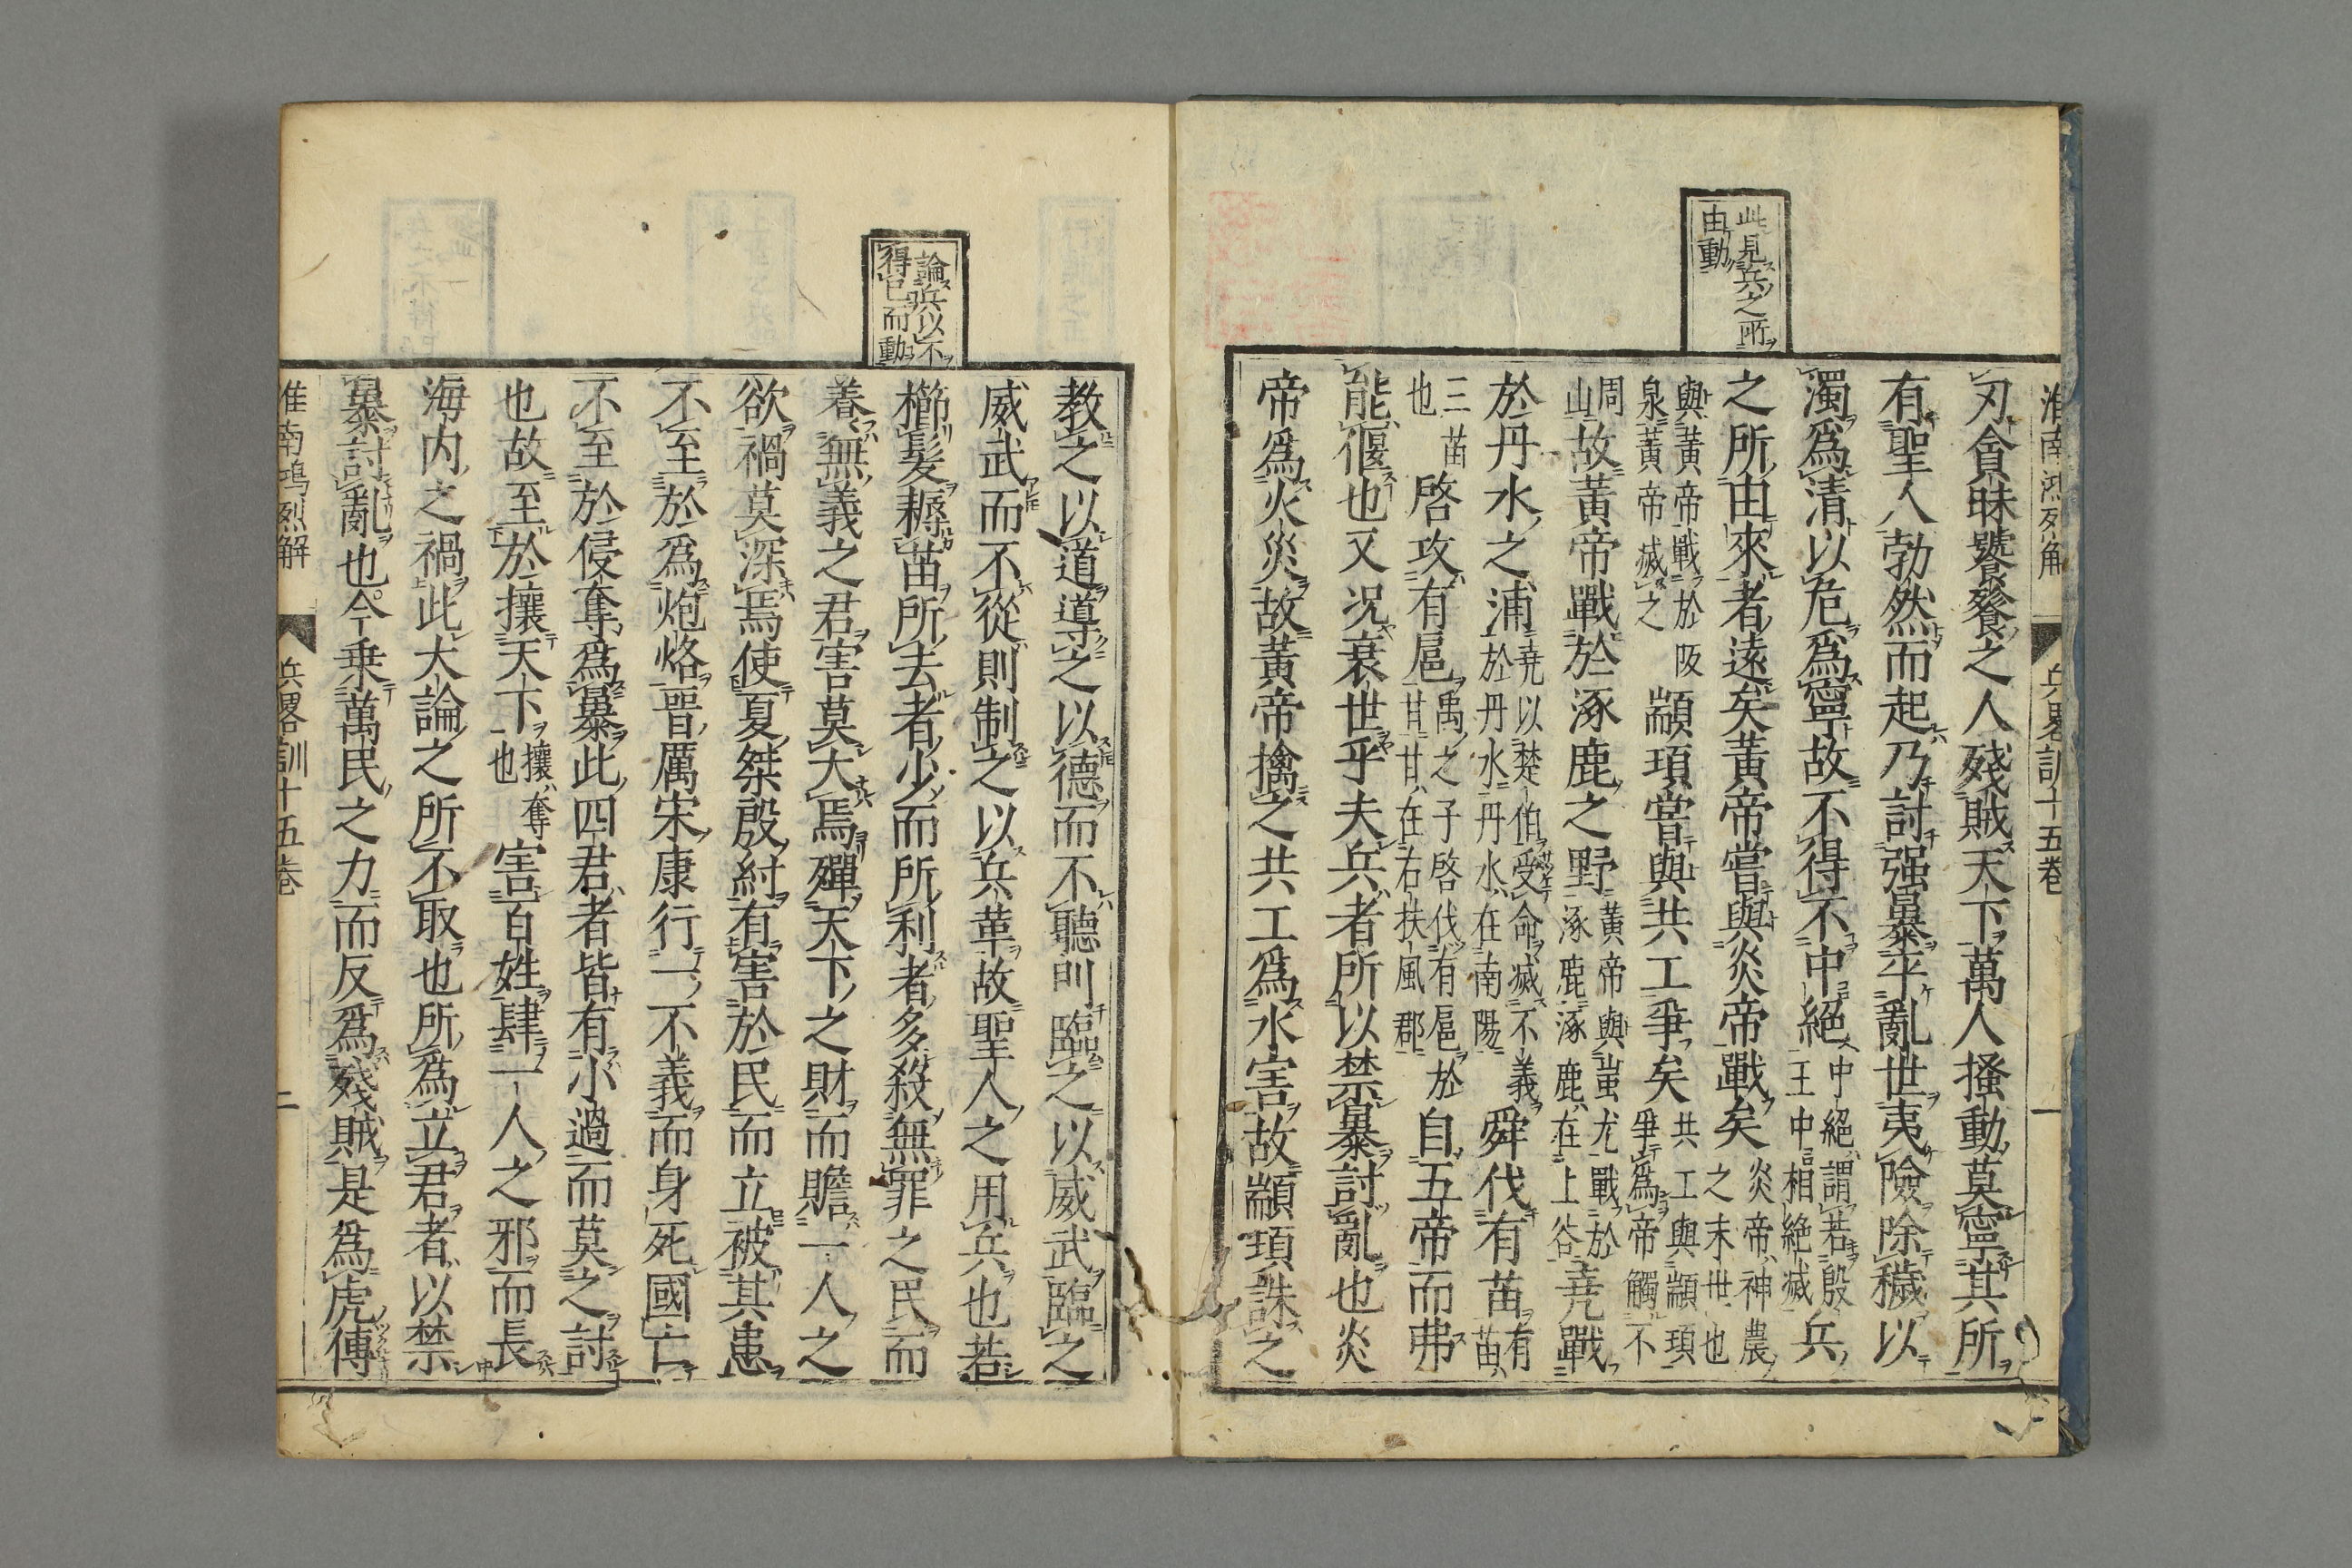 淮南鴻烈解 兵畧訓十五卷 一
此見兵之所
由動
刃貪昧饕餮之人殘賊天下萬人搔動莫寧其所
有聖人勃然而起乃討强暴平亂世夷險除穢以
濁爲清以危爲寧故不得不中絕中絕謂若殷王中相絕滅兵
之所由來者遠矣黃帝嘗與炎帝戰矣炎帝神農之末世也
與黃帝戰於阪泉黃帝滅之顓頊嘗與共工爭矣共工與顓頊爭爲帝觸不
周山故黃帝戰於涿鹿之野黃帝與蚩尤戰於涿鹿涿鹿在上谷堯戰
於丹水之浦堯以楚伯受命滅不義於丹水丹水在南陽舜伐有苗有苗
三苗也啓攻有扈禹之子啓伐有扈於甘甘在右扶風郡自五帝而弗
能偃也又況衰世乎夫兵者所以禁暴討亂也炎
帝爲火災故黃帝擒之共工爲水害故顓頊誅之
論兵以不
得已而動
教之以道導之以德而不聽則臨之以威武臨之
威武而不從則制之以兵革故聖人之用兵也若
櫛髮耨苗所去者少而所利者多殺無罪之民而
養無義之君害莫大焉殫天下之財而贍一人之
欲禍莫深焉使夏桀殷紂有害於民而立被其患
不至於爲炮烙晋厲宋康行一不義而身死國亡
不至於侵奪爲暴此四君者皆有小過而莫之討
也故至於攘天下攘奪也害百姓肆一人之邪而長
海內之禍此大論之所不取也所爲立君者以禁
暴討亂也今乗萬民之力而反爲殘賊是爲虎傅
淮南鴻烈解 兵畧訓十五卷 二